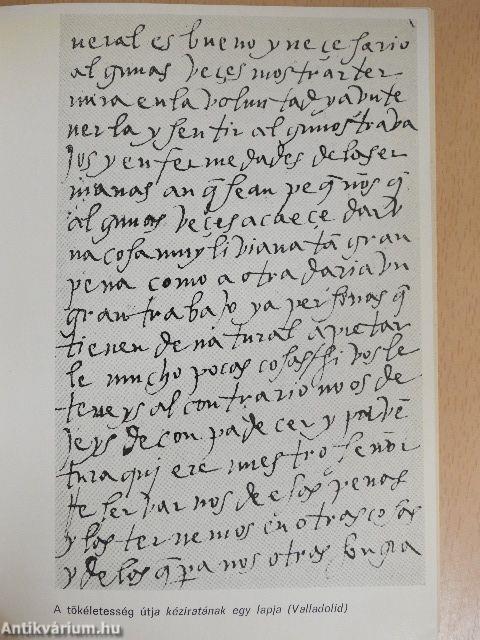 neral es bueno y neçesario
algunas veçes mostrar ter
nura en la voluntad y avn te
nerla y sentir algunos traba
jos y enfermedades de las er
manas an q̃ sean peq̃nos q̃
algunas veçes acaeçe dar v
na cosa muy liviana tã gran
pena como a otra daria vn
gran trabajo y a personas q̃
tienen de natural apretar
le mucho pocas cosas si vos le
teneys al contrario no os de
jeys de conpadeçer y por vẽ
tura quiere nuestro señor
reservarnos de esas penas
y las ternemos en otras cosas
y de las q̃ para nosotras son gra
A tökéletesség útja kéziratának egy lapja (Valladolid)
Antikvárium.hu